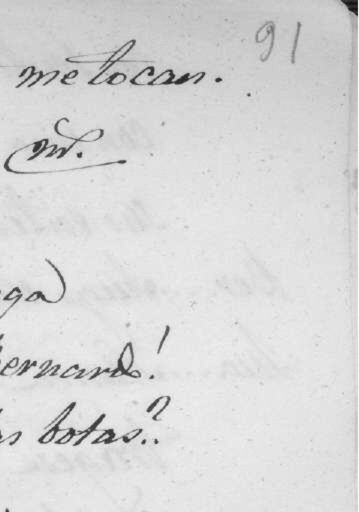 91
me tocan.
M.
ga
Bernard!
as botas?